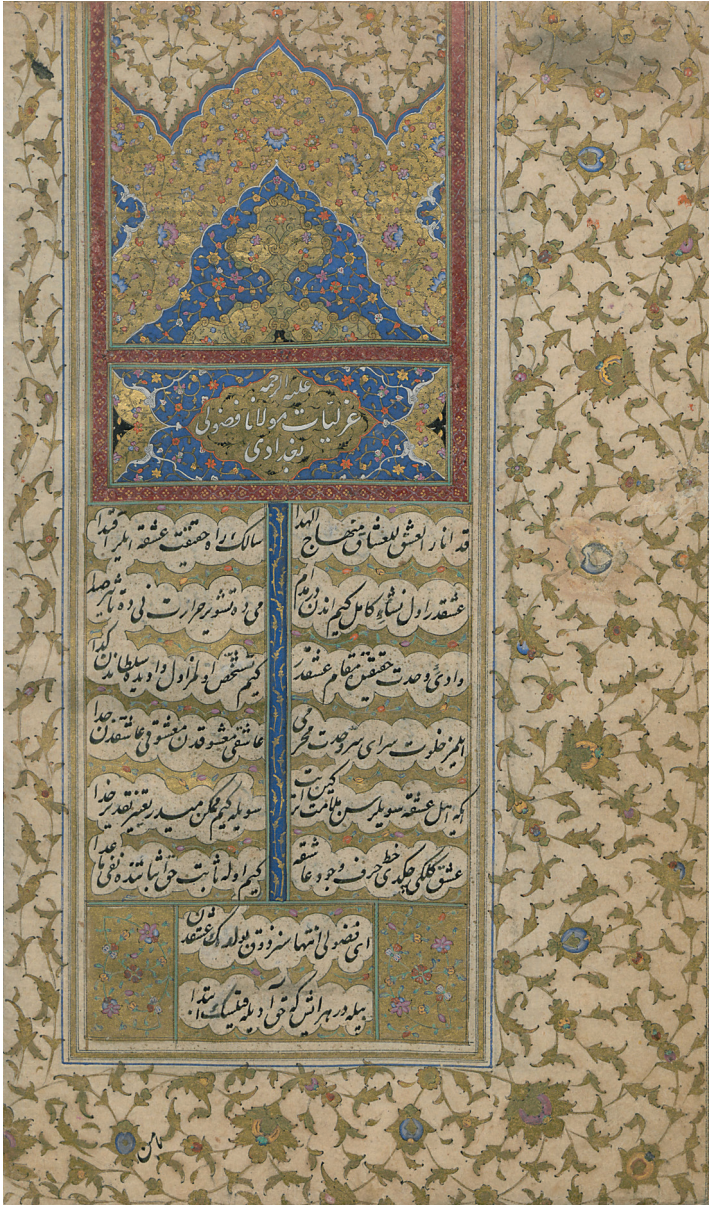 علیه الرحمه
غزلیات مولانا فضولی
بغدادی
قد انار العشق للعشاق منهاج الهدا
سالک راه حقیقت عشقه ایلر اقتدا
عشقدر اول نشاء کامل کیم اندن در مدام
می ده تشویر حرارت نی ده تاثیر صدا
وادی وحدت حقیقتده مقام عشقدر
کیم مشخص اولمز اول وادیده سلطاندن کدا
ایلمز خلوت سرای سر وحدت محرمی
عاشقی معشوقدن معشوقی عاشقدن جدا
ای که اهل عشقه سویلرسن ملامت ترکین ایت
سویله کیم ممکن میدر تغییر تقدیر خدا
عشق کلکی چکدی خط حرف وجود عاشقه
کیم اوله ثابت حق اثباتنده نفی ماعدا
ای فضولی انتها سز ذوق بولدک عشقدن
بیله در هر ایش که حق آدیله قیلسک ابتدا